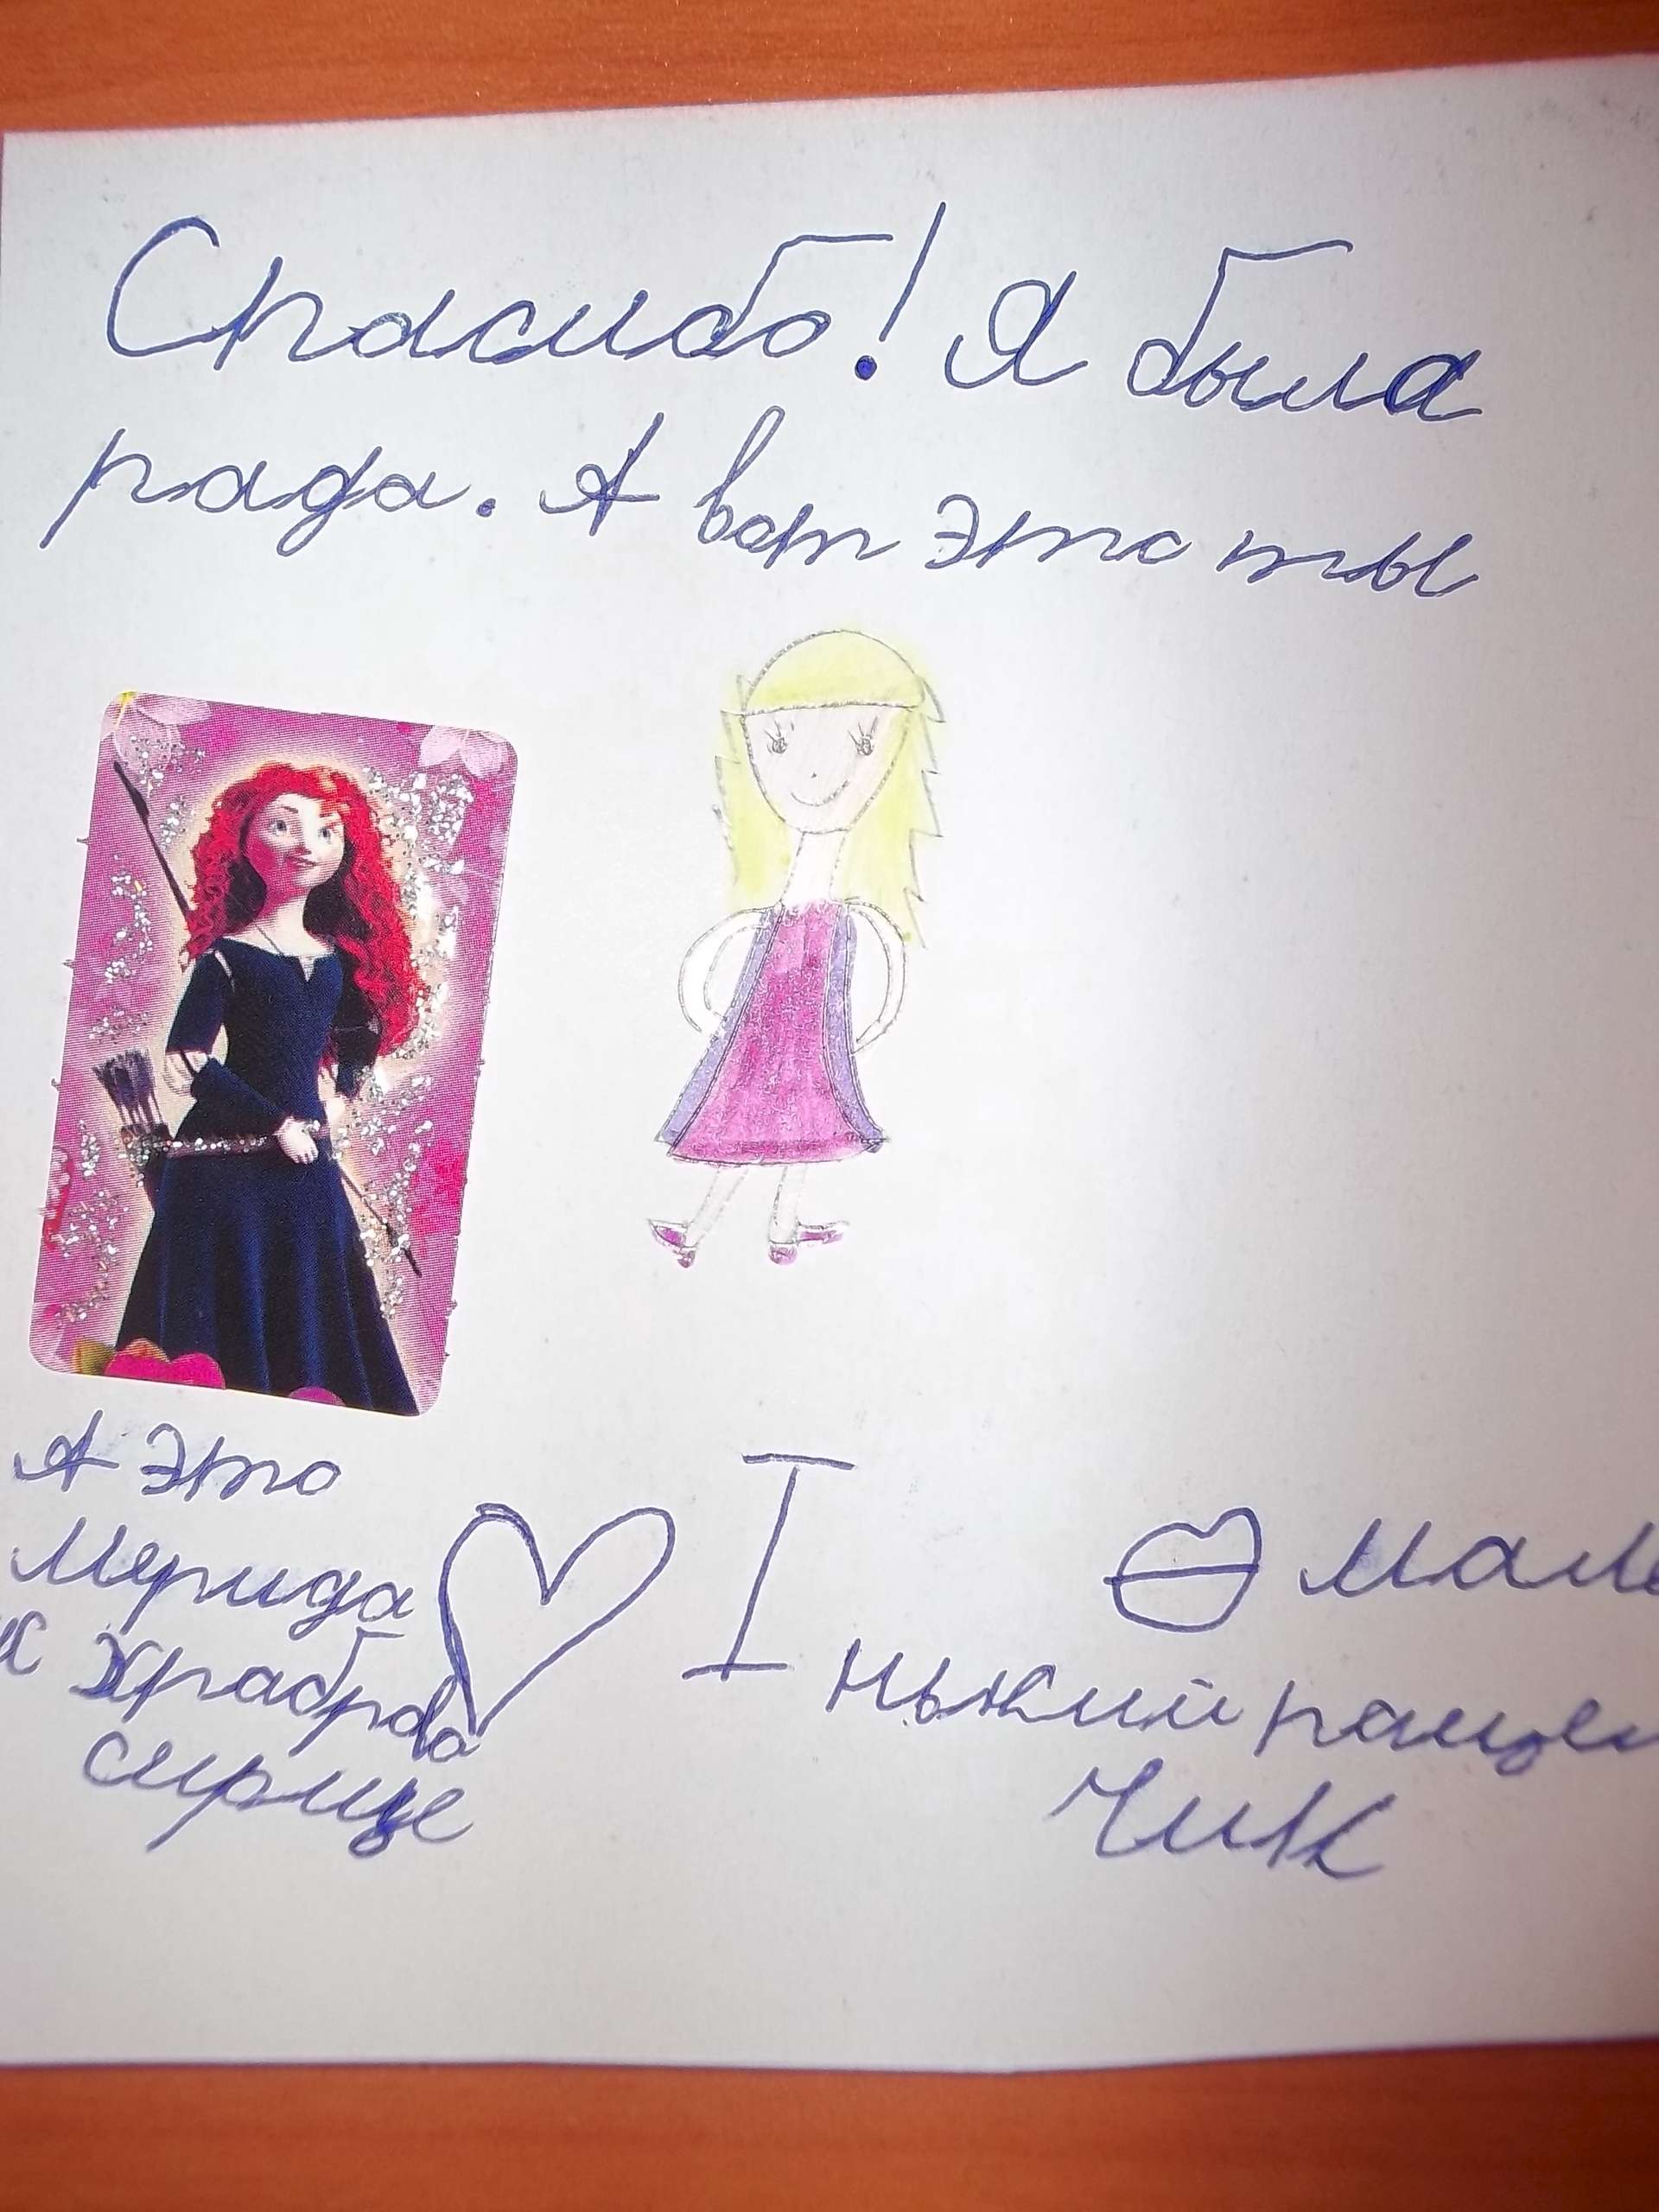 Спасибо! Я была
рада. А вот это ты
А это
Мерида
Храброе
сирце
I
мале
нький
Чик